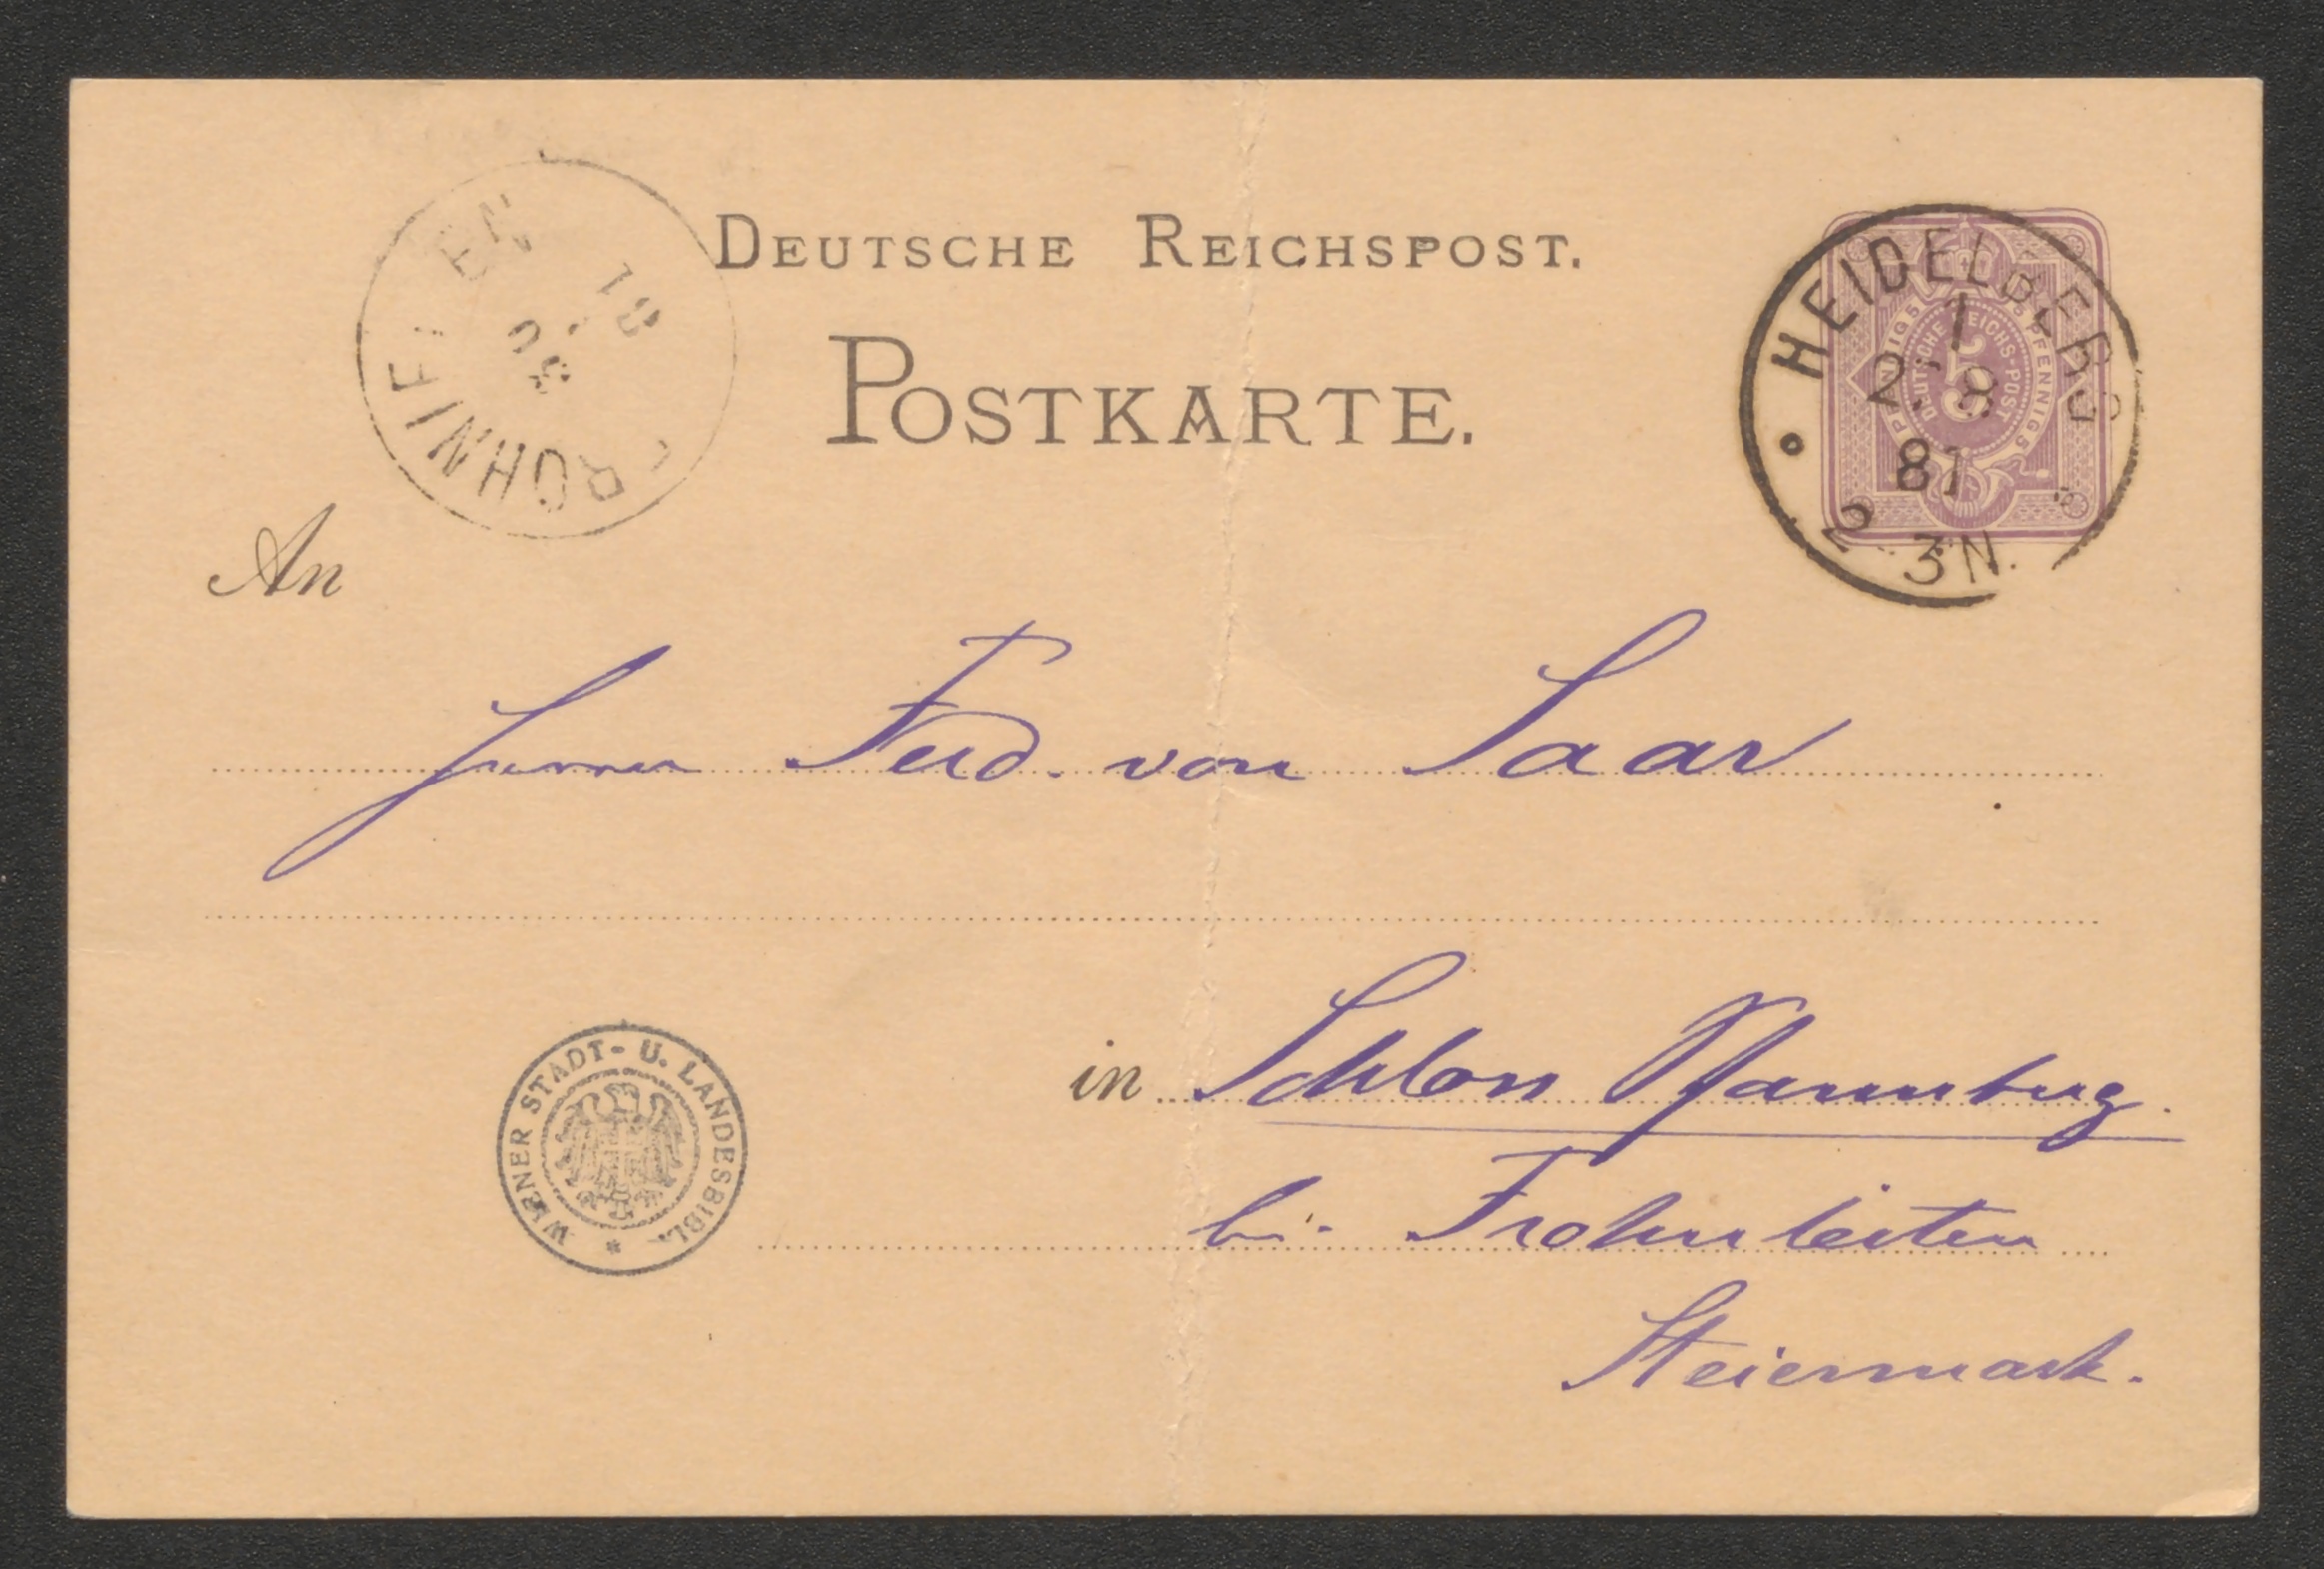 DEUTSCHE REICHSPOST.
POSTKARTE.
HEIDELBERG
1
2 8
81
2-3N.
PFENNIG 5 5 PFENNIG 5
DEUTSCHE REICHS-POST
5
81
An
Herrn Ferd. von Saar
in Schloss Pfannberg.
bei Frohnleiten
Steiermark.
WIENER STADT- U. LANDESBIBL. *